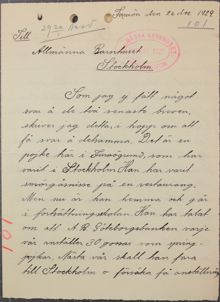 den 20 dec 1929
Till
Allmänna Barnhuset
Stockholm
Som jag ej fått något
svar å de två senaste breven,
skriver jag detta, i hopp om att
få svar å detsamma. Det är en
pojke här i som har
varit i Stockholm. Han har varit
smörgåsnisse på en restaurang.
Men nu är han hemma och går
i fortsättningsskolan. Han har talat
om att A.B. Göteborgsbanken varje
vår anställer 30 gossar som spring-
pojkar. Nästa vår skall han fara
till Stockholm o försöka få anställning